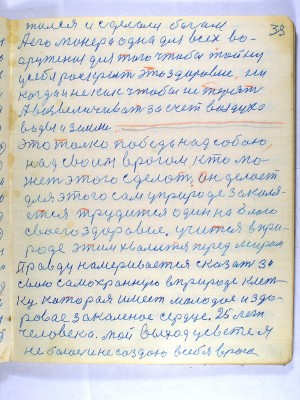 38
жился и сделали богам
А его манера одна для всех во-
аружения для того чтобы тайну
у себя раскрыт это здоровие, ни
когда и не как чтобы не терят
А возвеличиват за счет воздуха
воды и земли.
это толко победа над собою,
над своим врогом. кто мо-
жет этого сделат, он делает
для этого сам у природе закаля-
ется трудится один на благо
своего здоровие, учится в при-
роде этим хвалится перед миром
Правду намеривается сказат за
свою самохранную в природе клет-
ку. каторая имеет молодое и здо-
ровае закаленое сердце. 25 лет
человека. мой выход
не болею и не создаю в себя врога